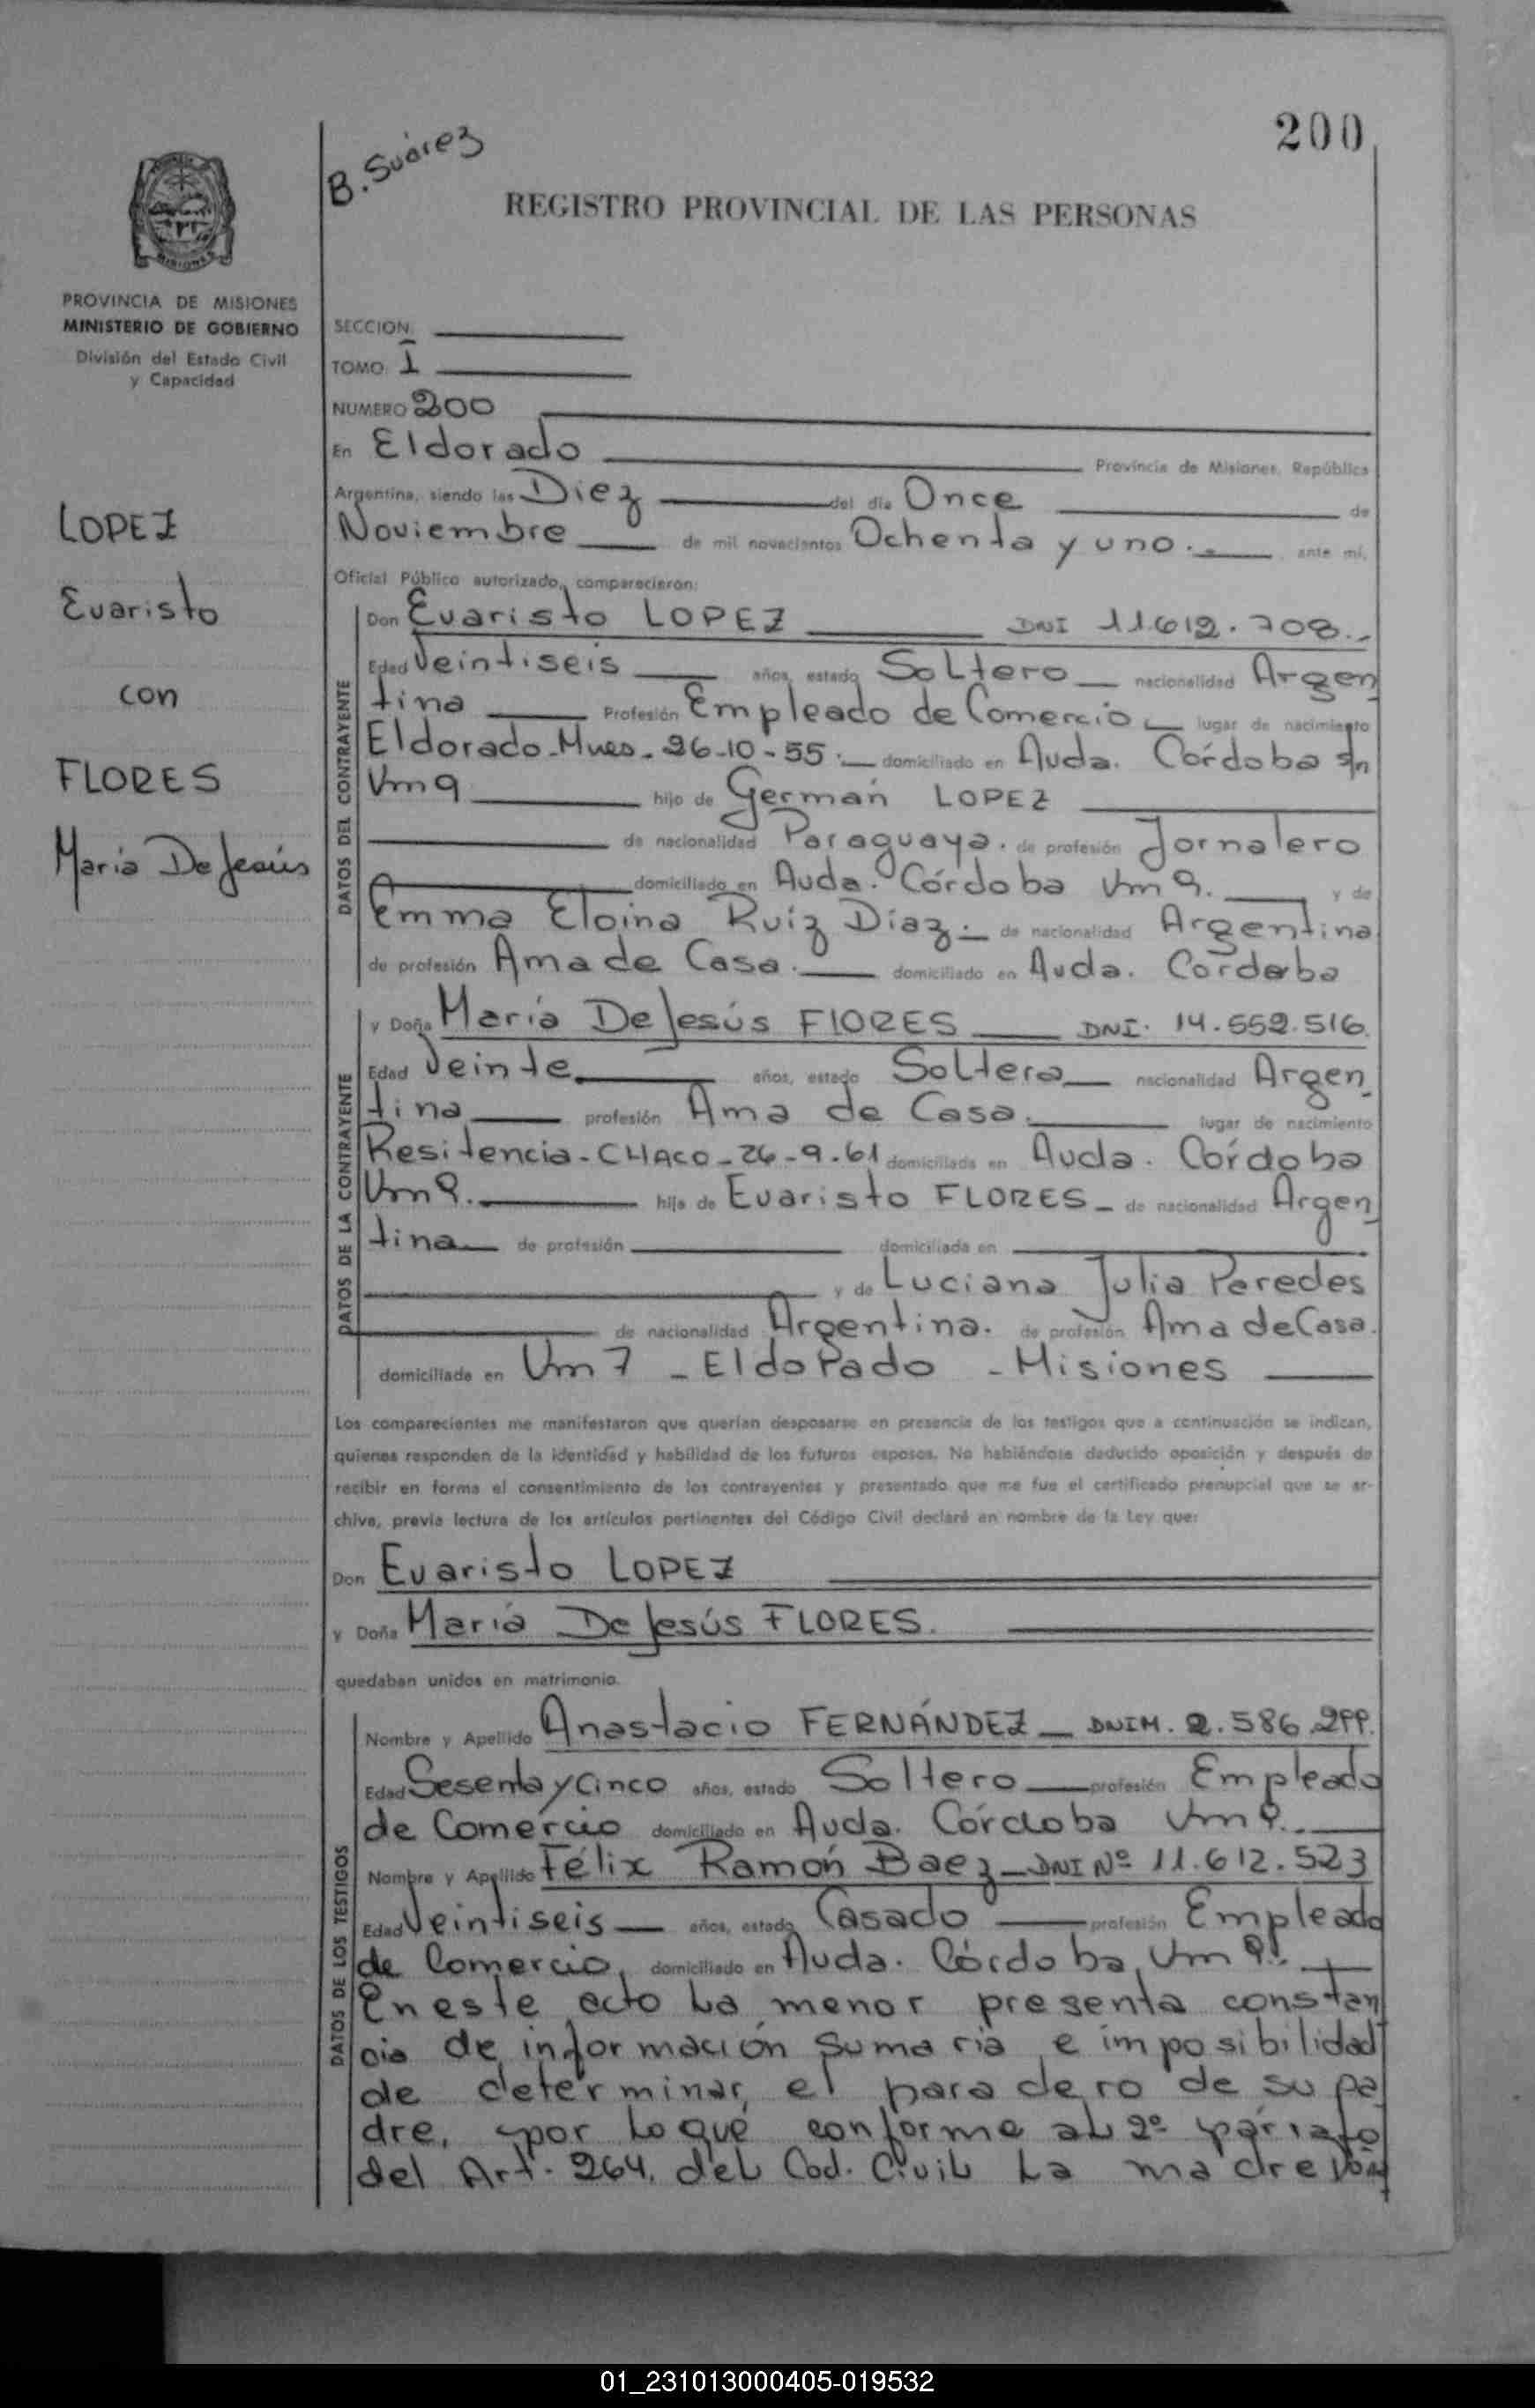 200
B. Suárez
REGISTRO PROVINCIAL DE LAS PERSONAS
MISIONES
PROVINCIA DE MISIONES
MINISTERIO DE GOBIERNO
División del Estado Civil
y Capacidad
LOPEZ
Evaristo
con
FLORES
María De Jesús
SECCION:
TOMO: I
NUMERO 200
En Eldorado Provincia de Misiones, República
Argentina, siendo las Diez del día Once de
Noviembre de mil novecientos Ochenta y uno. ante mí,
Oficial Público autorizado, comparecieron:
DATOS DEL CONTRAYENTE
Don Evaristo LOPEZ DNI 11.612.708.
Edad Veintiseis años, estado Soltero nacionalidad Argen
tina Profesión Empleado de Comercio lugar de nacimiento
Eldorado-Mnes-26-10-55. domiciliado en Avda. Córdoba s/n
Km 9 hijo de Germán LOPEZ
de nacionalidad Paraguaya. de profesión Jornalero
domiciliado en Avda. Córdoba Km 9. y de
Emma Eloina Ruiz Díaz. de nacionalidad Argentina
de profesión Ama de Casa. domiciliado en Avda. Cordoba
DATOS DE LA CONTRAYENTE
y Doña María De Jesús FlORES DNI. 14.552.516.
Edad Veinte años, estado Soltera nacionalidad Argen
tina profesión Ama de Casa. lugar de nacimiento
Resistencia-CHACO-26-9-61 domiciliada en Avda. Córdoba
Km 9. hija de Evaristo FLORES de nacionalidad Argen
tina de profesión domiciliado en
y de Luciana Julia Paredes
de nacionalidad Argentina. de profesión Ama de Casa.
domiciliada en Km 7 - Eldorado - Misiones
Los comparecientes me manifestaron que querían desposarse en presencia de los testigos que a continuación se indican,
quienes responden de la identidad y habilidad de los futuros esposos. No habiéndose deducido oposición y después de
recibir en forma el consentimiento de los contrayentes y presentado que me fue el certificado prenupcial que se ar-
chiva, previa lectura de los artículos pertinentes del Código Civil declaré en nombre de la Ley que:
Don Evaristo LOPEZ
y Doña María De Jesús FLORES.
quedaban unidos en matrimonio.
DATOS DE LOS TESTIGOS
Nombre y Apellido Anastacio FERNÁNDEZ DNIM. 2.586.299.
Edad Sesenta y Cinco años, estado Soltero profesión Empleado
de Comercio domiciliado en Avda. Córdoba Km 9.
Nombre y Apellido Félix Ramón Baez DNI Nº 11.612.523
Edad Veintiseis años, estado Casado profesión Empleado
de Comercio, domiciliado en Avda. Córdoba, Km 9.
En este acto la menor presenta constan
cia de información sumaria e imposibilidad
de determinar, el paradero de su pa
dre, por lo que conforme al 2º párrafo
del Art. 264. del Cod. Civil la madre
01_231013000405-019532